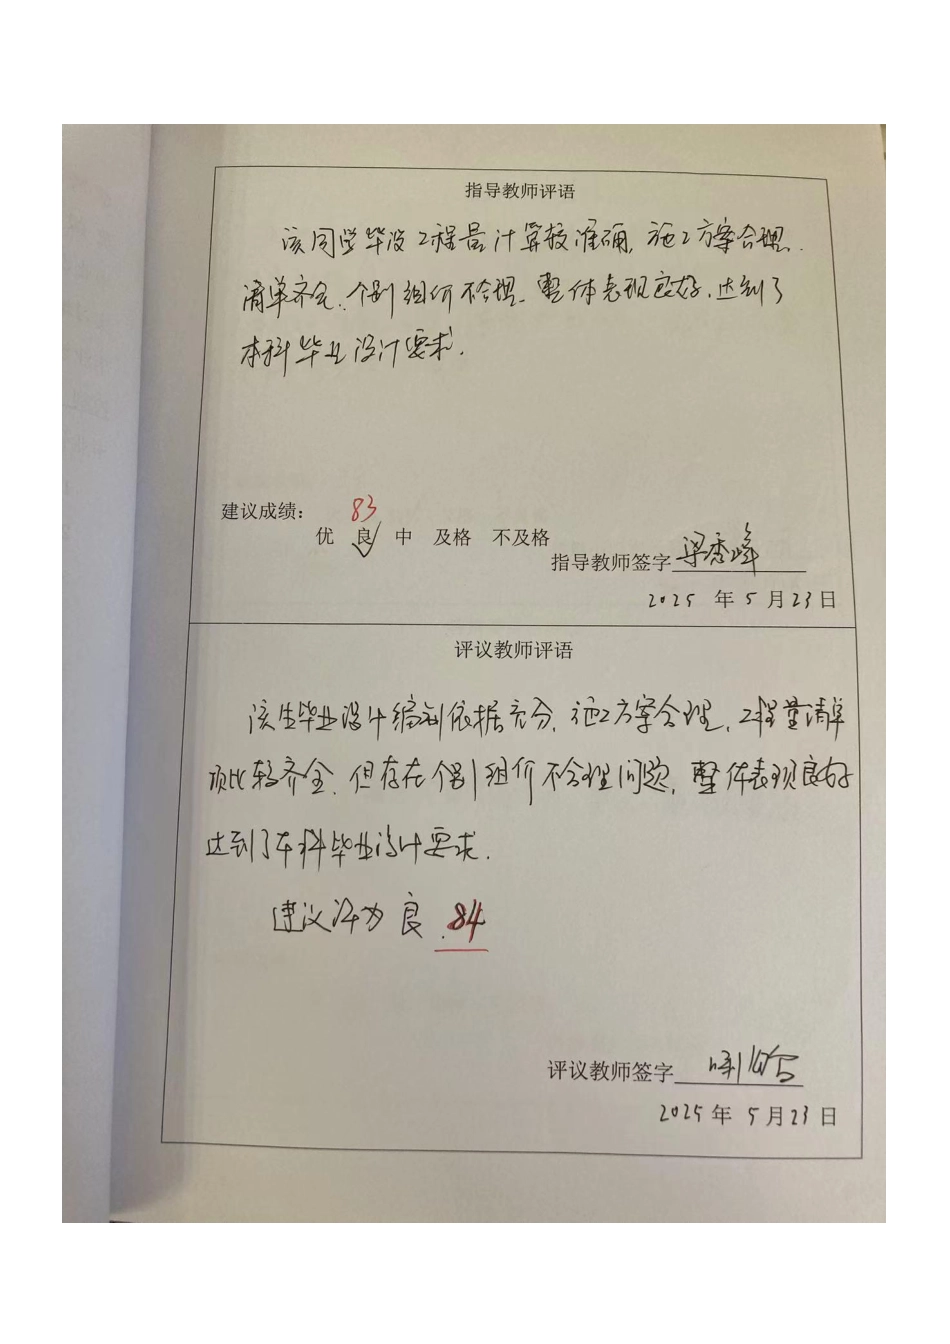 指导教师评语
该同学毕设工程量计算较准确,施工方案合理.
清单齐全、个别组价不合理、整体表现良好.达到了
本科毕业设计要求.
建议成绩: 83
优 良 中 及格 不及格
指导教师签字 梁秀峰
2025 年 5 月 23 日
评议教师评语
该生毕业设计编制依据充分,施工方案合理,工程量清单
项比较齐全.但存在个别组价不合理问题,整体表现良好
达到了本科毕业设计要求.
建议评为 良.84
评议教师签字
2025 年 5 月 23 日